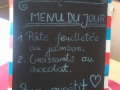 MENU DU JOUR
1. Pâte feuilletée
au jambon.
2. Croissants au
chocolat.
appétit